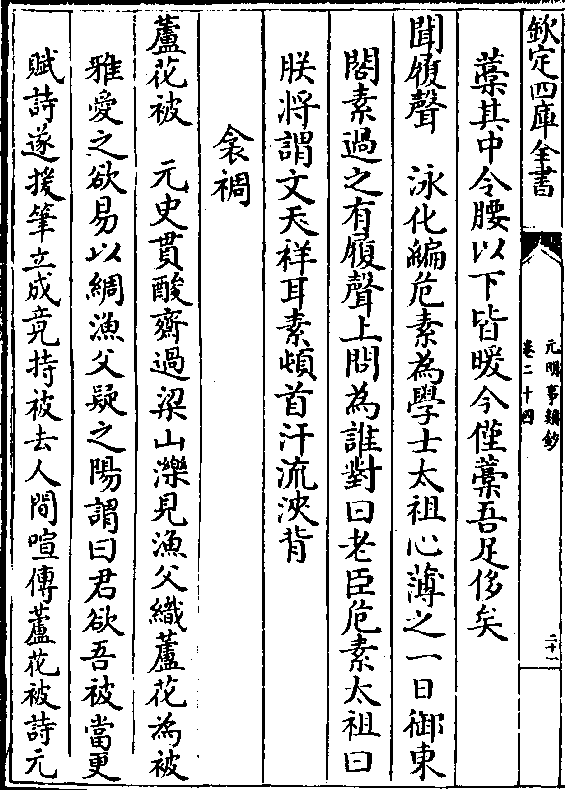 欽定四庫全書
元明事類鈔
卷二十四
二十一
藁其中令腰以下皆暖今僅藁吾足侈矣
聞履聲　泳化編危素為學士太祖心薄之一日御東
閤素過之有履聲上問為誰對曰老臣危素太祖曰
朕將謂文天祥耳素頓首汗流浹背
衾裯
蘆花被　元史貫酸齋過梁山濼見漁父織蘆花為被
雅愛之欲易以綢漁父疑之陽謂曰君欲吾被當更
賦詩遂援筆立成竟持被去人間喧傳蘆花被詩元